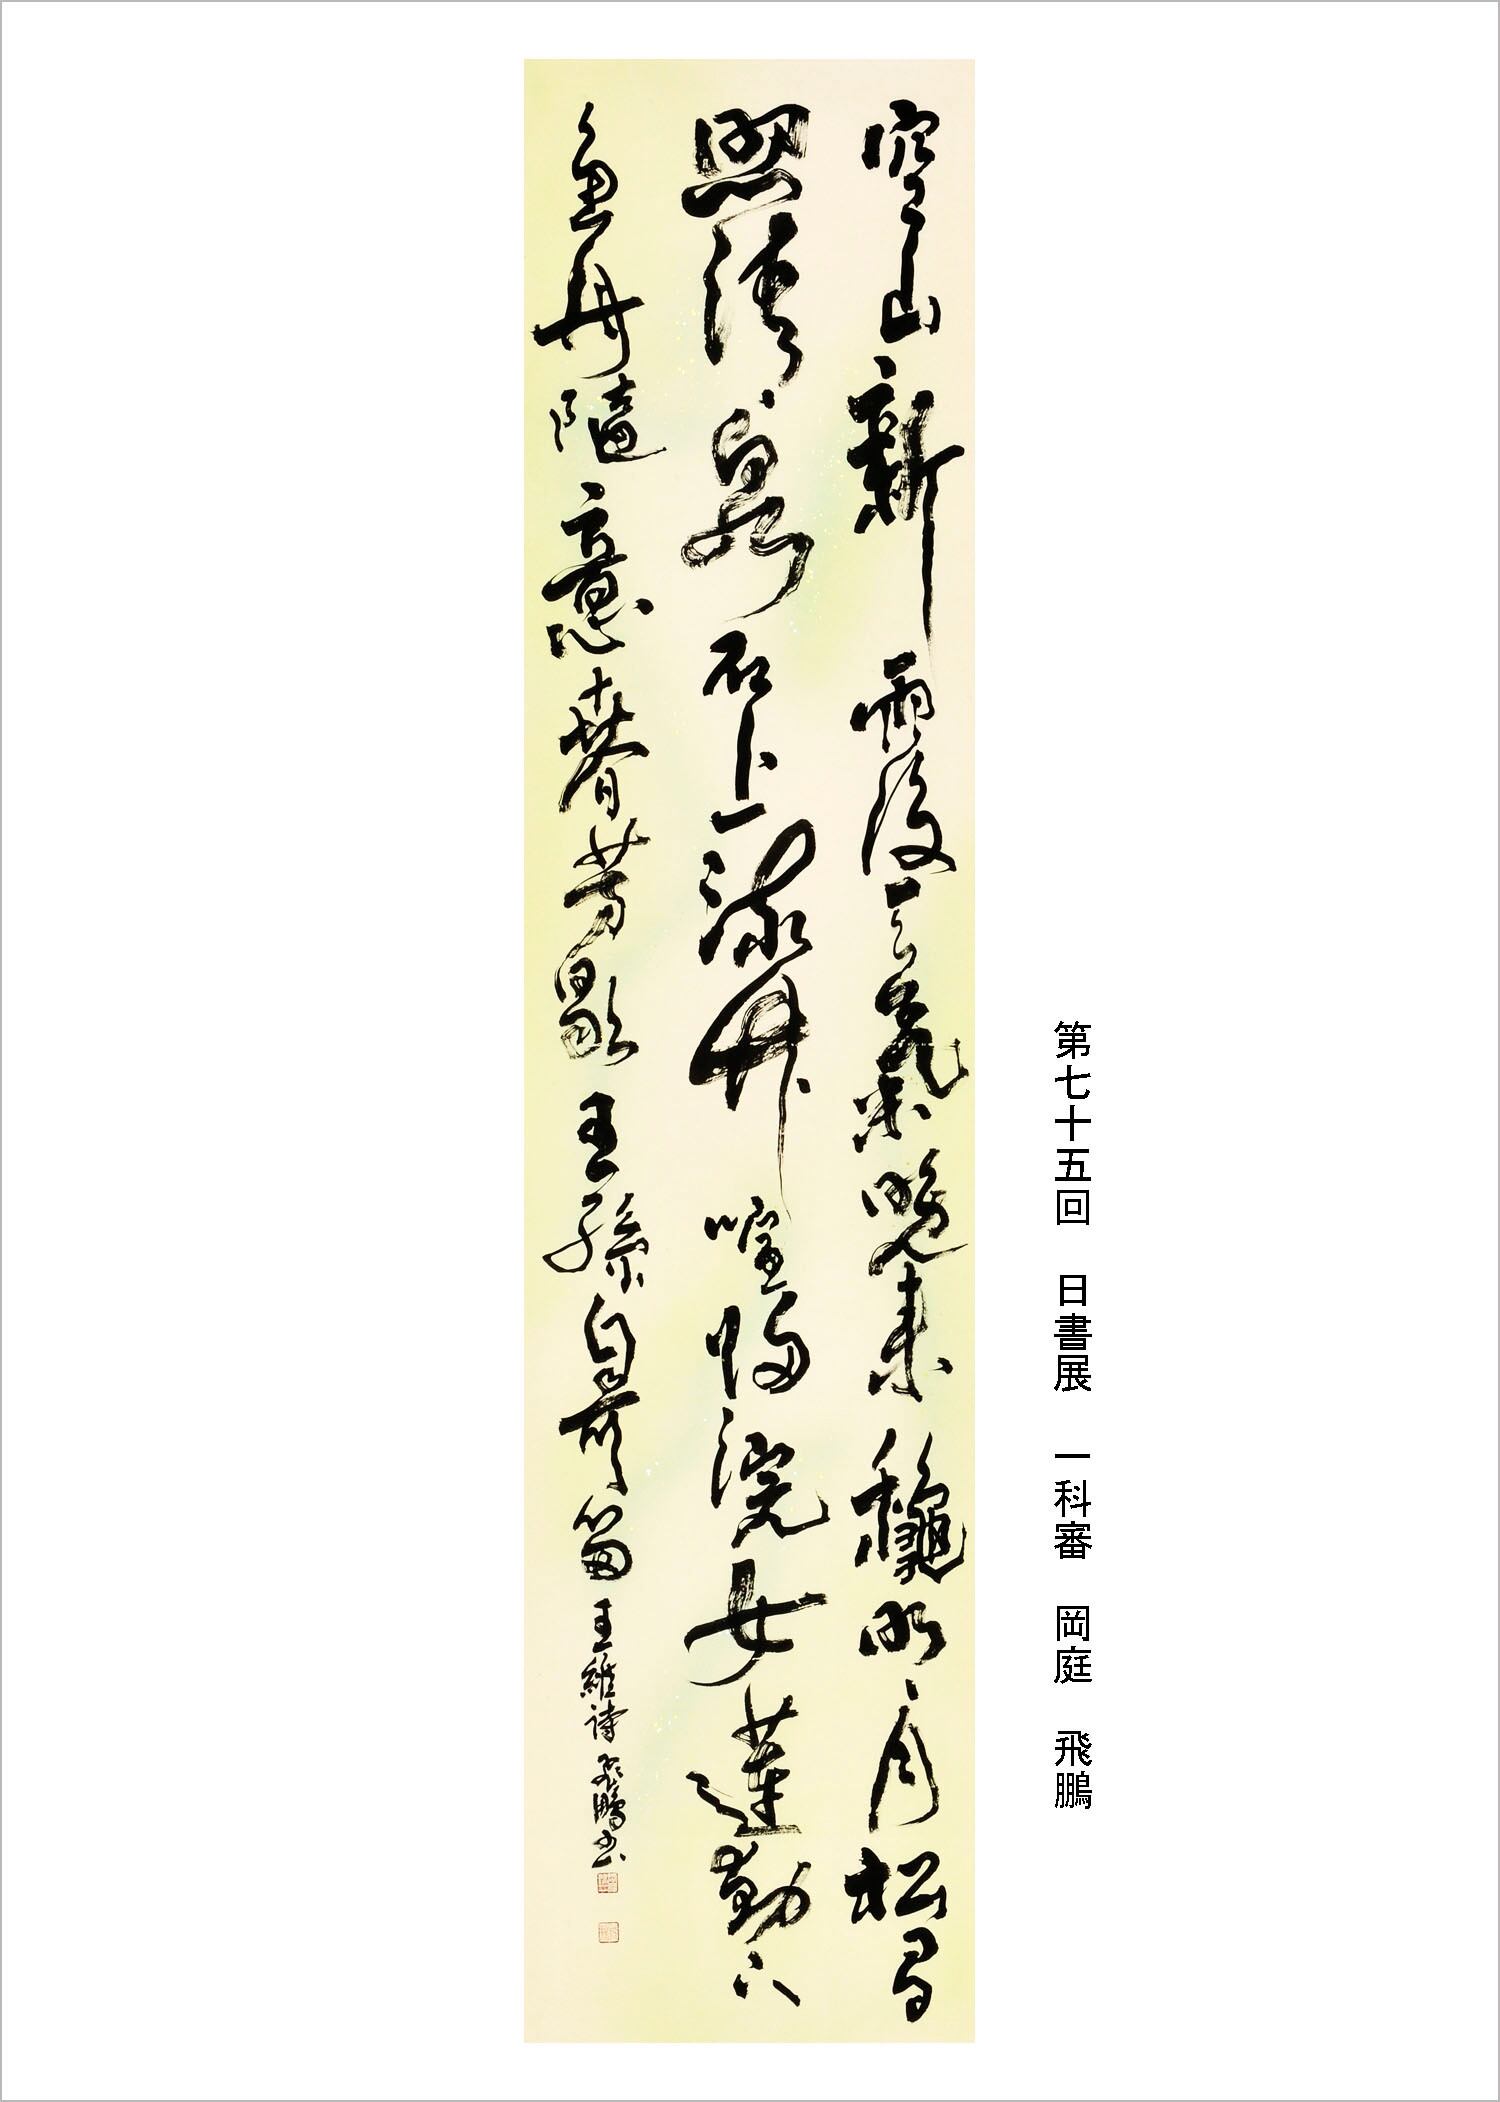 第七十五回　日書展　一科審　岡庭　飛鵬
空山新雨後天氣晚來龝明月松間
照清泉石上流竹喧歸浣女蓮動下
魚舟隨意春芳歇王孫自可留 王維詩 飛鵬書